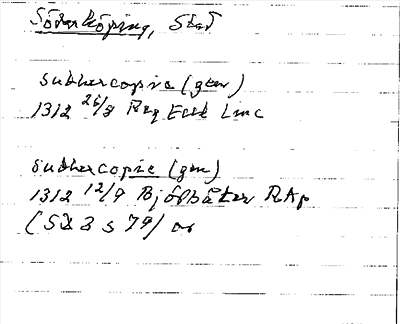 Söderköping, Stad
sudhercopie (gen)
1312 26/8 Reg Eccl Linc
sudhercopie (gen)
1312 12/9 Björsäter RAp
(SD 3 s 79) or